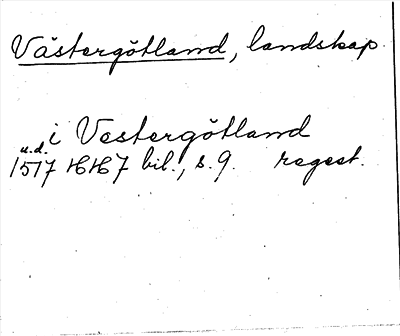 Västergötland, landskap
i Vestergötland
u.d.
1517 HH 7 bil., s. 9. regest.